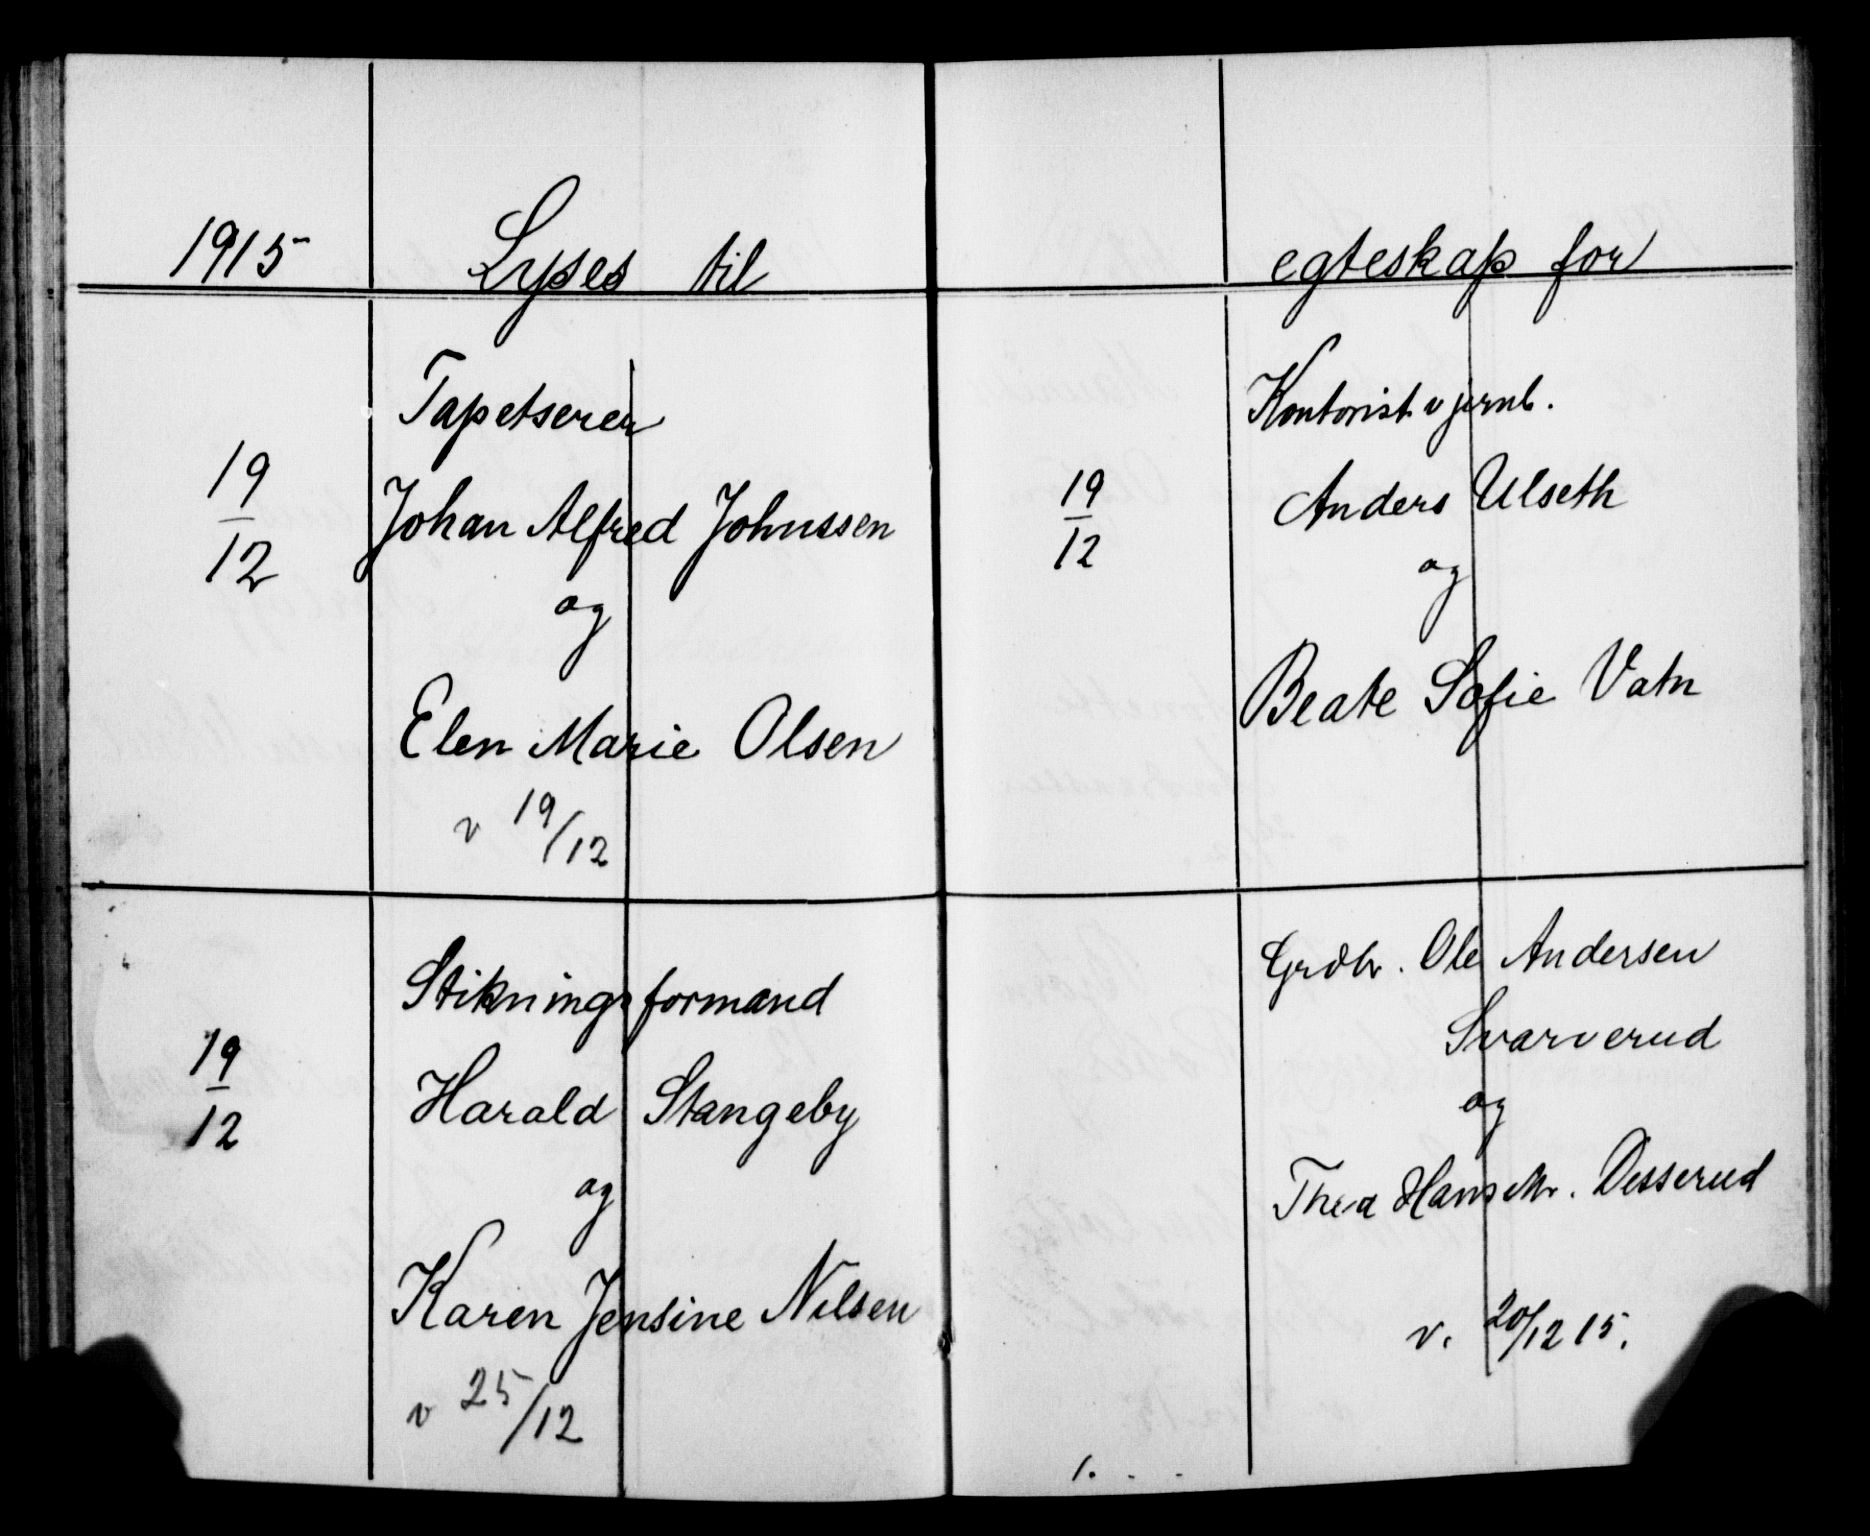 1915 Lyses til
Tapetserer
19/12 Johan Alfred Johnssen
og
Elen Marie Olsen
v 19/12
Stikningsformand
19/12 Harald Stangeby
og
Karen Jensine Nilsen
v 25/12
egteskap for
Kontorist v jernb.
19/12 Anders Ulseth
og
Beate Sofie Vatn
Grdbr. Ole Andersen
Svarverud
og
Thea Desserud
v. 20/12 15.